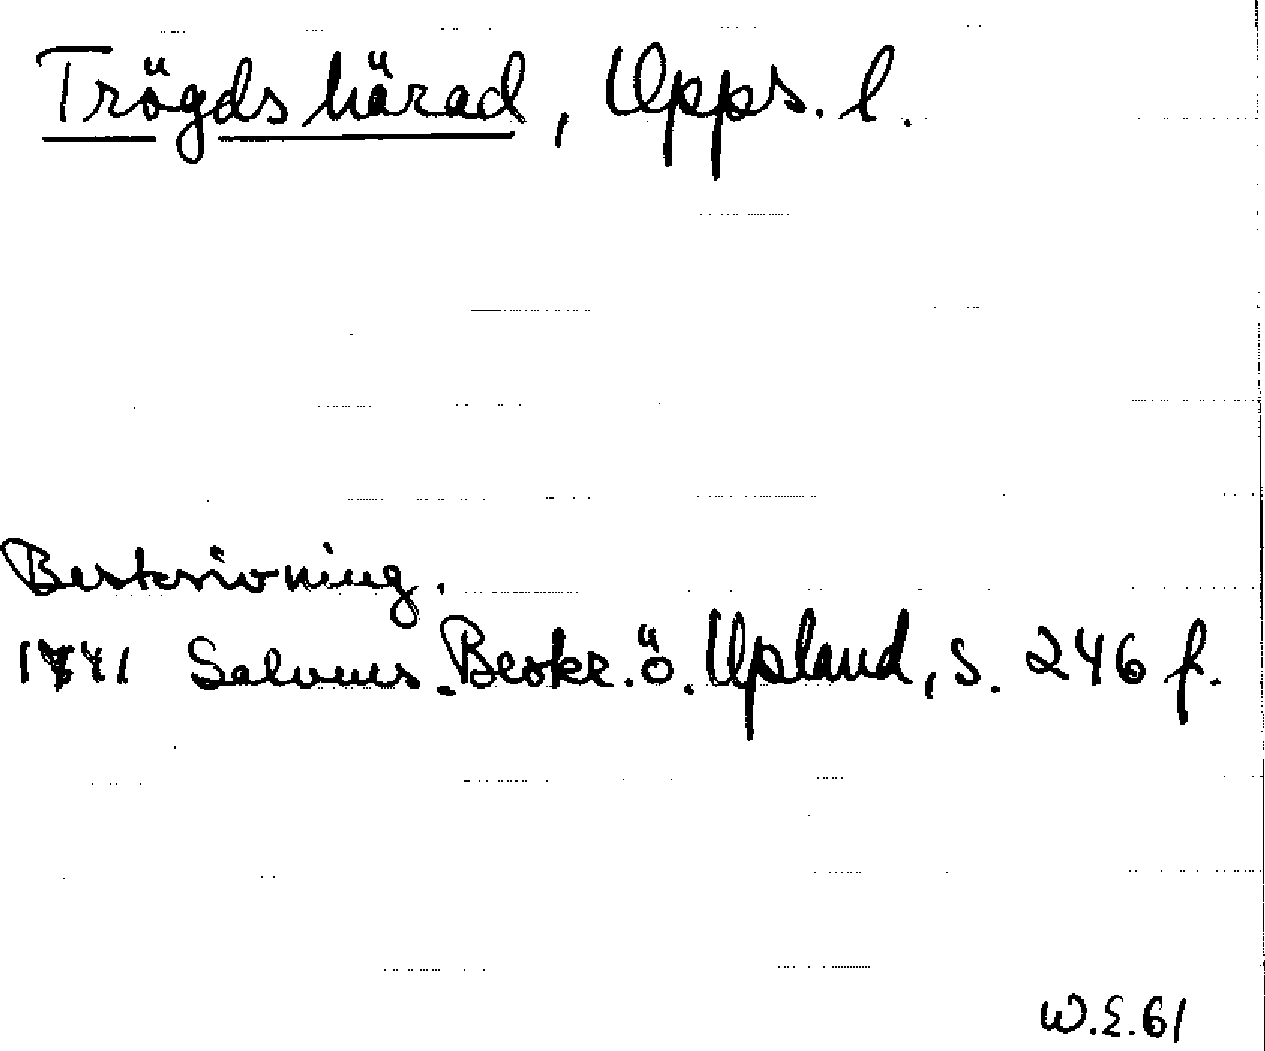 Trögds härad, Upps. l.
Beskrivning.
1741 Salvius. Beskr. ö. Upland, s. 246 f.
W.E.61